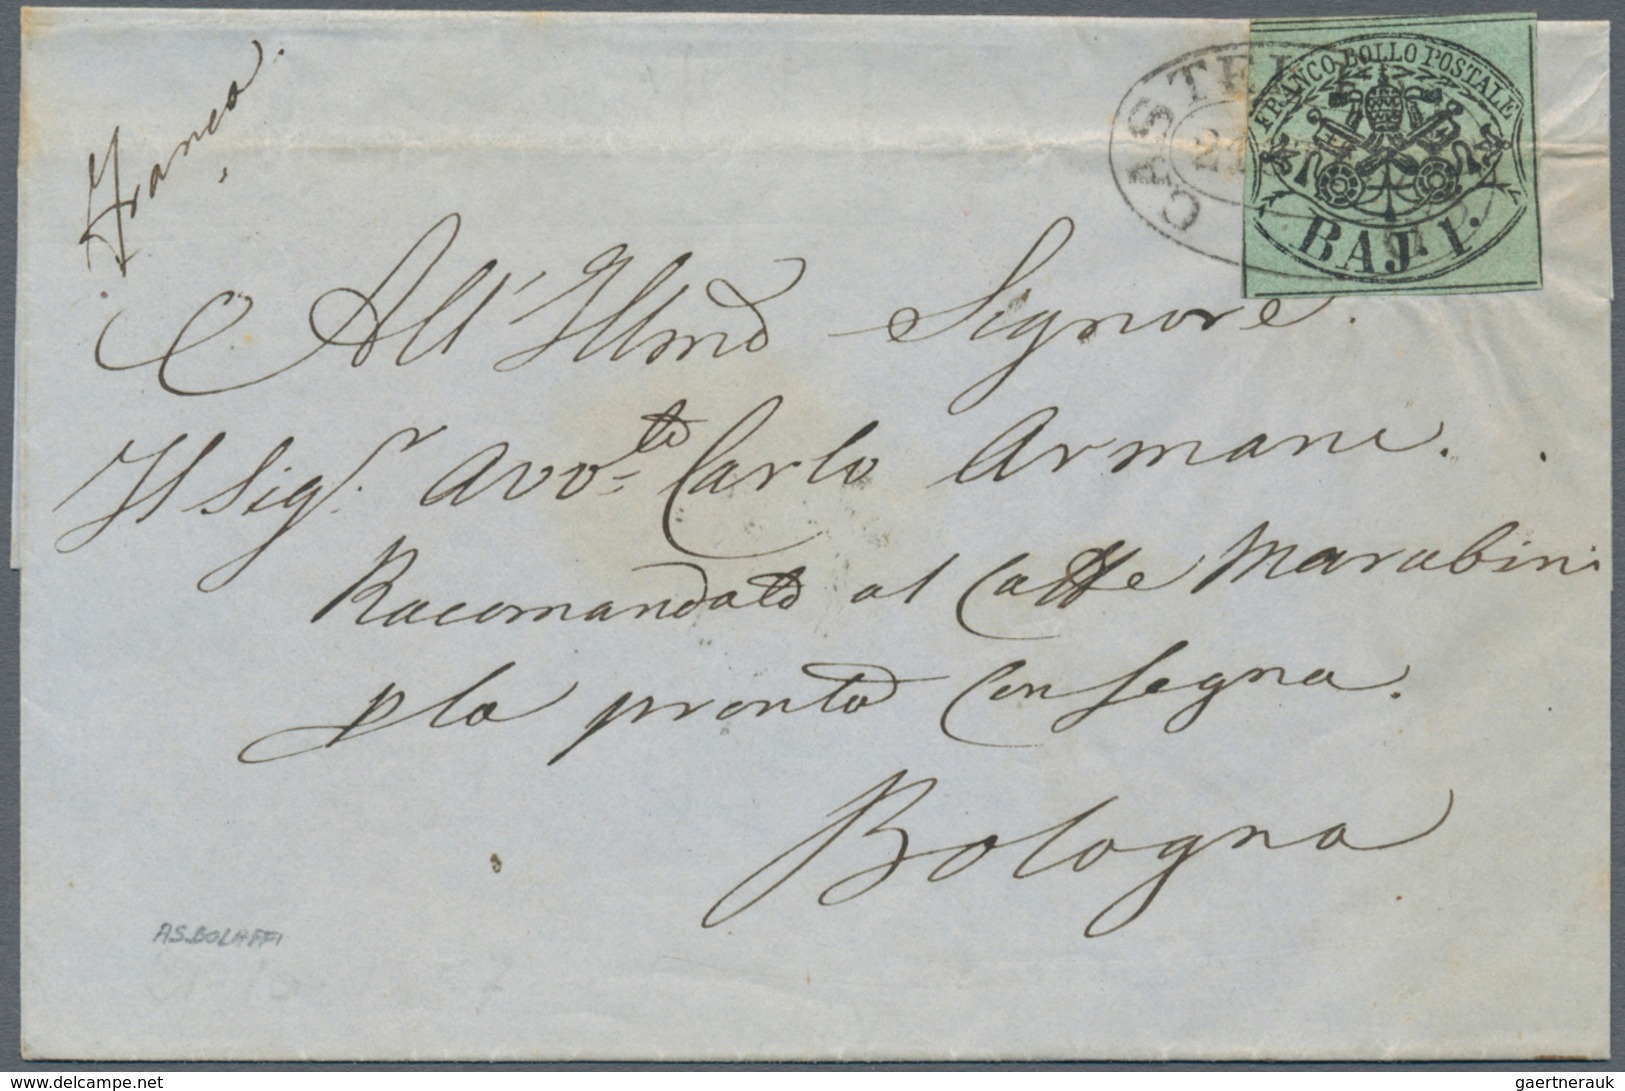 Franca
CASTEL
FRANCO BOLLO POSTALE
BAJ. 1.
All' Illmo Signore.
Il Sig.r Avv.to Carlo Armani.
Racomandato al Caffe Marabini
p la pronta Consegna.
Bologna
A.S.BOLAFFI
www.delcampe.net
gaertnerauk